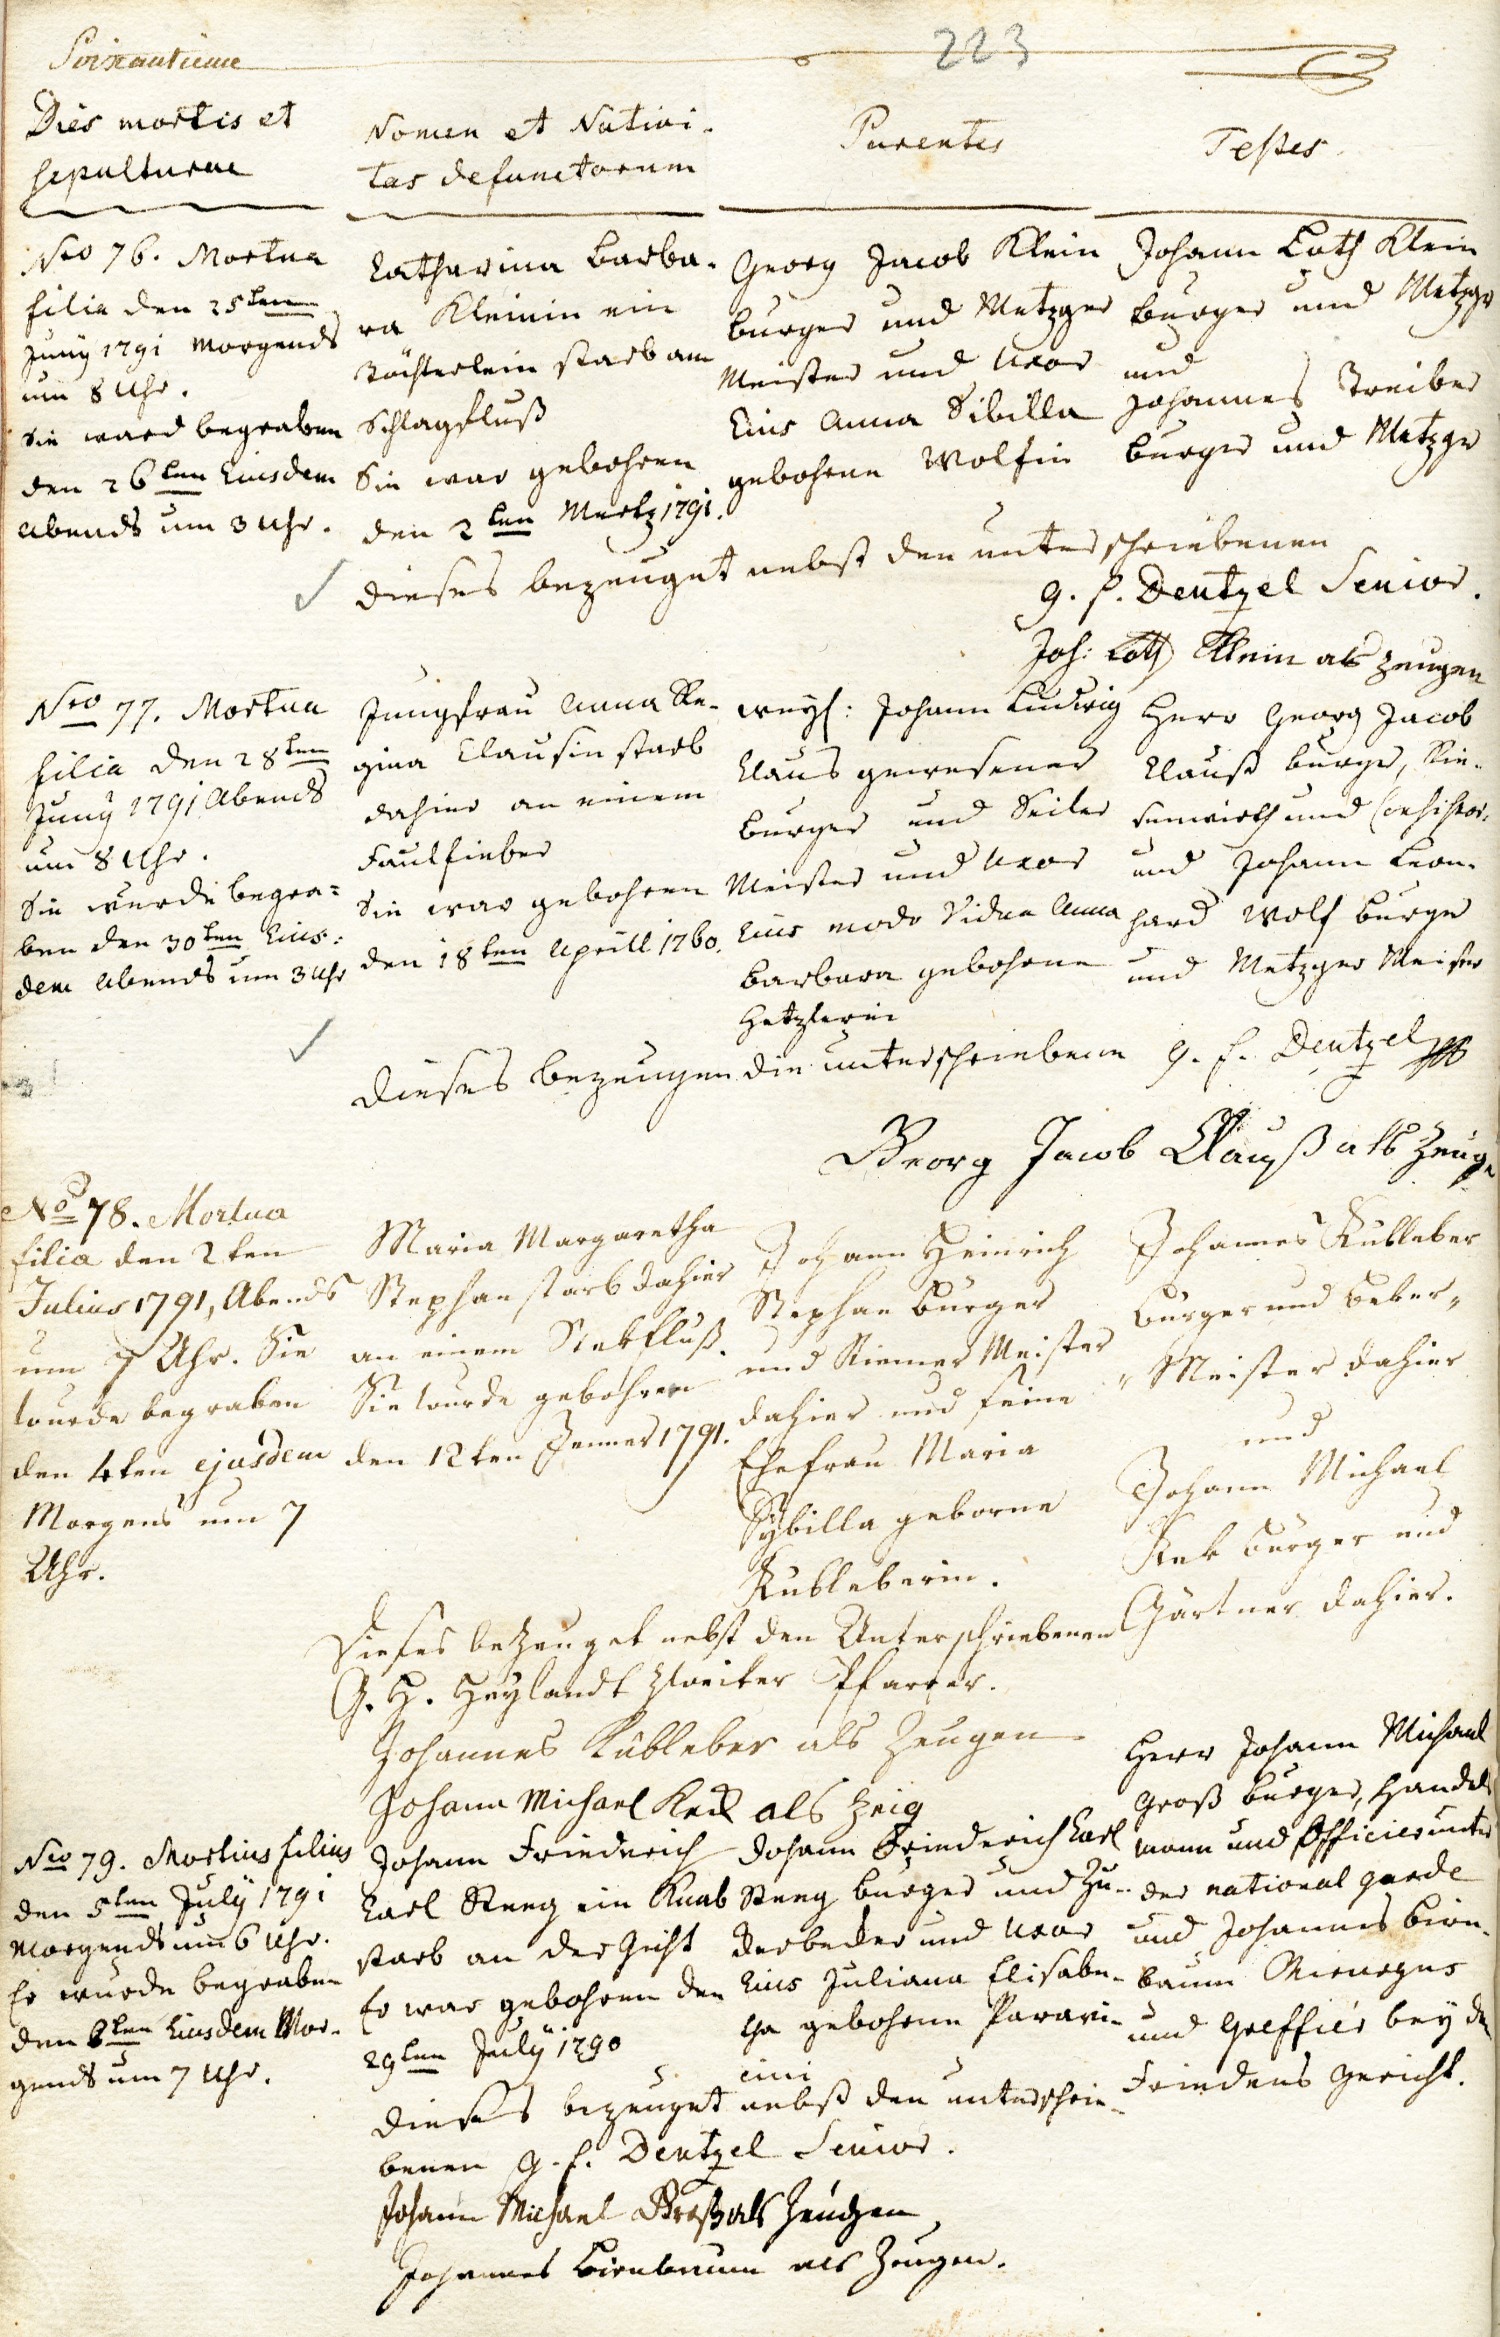 Soixantieme
223
Dies mortis et
sepulturae
Nomen et Nativi-
tas defunctorum
Parentes
Testes
Nro 76. Mortua
filia den 25ten
Juny 1791 Morgends
um 8 Uhr.
Sie ward begraben
den 26ten Eiusdem
Abends um 3 Uhr.
Catharina Barba-
ra Kleinin ein
Töchterlein starb am
Schlagfluß
Sie war gebohren
den 2ten Mertz 1791.
Georg Jacob Klein
burger und Metzger
Meister und Uxor
Eius Anna Sibilla
gebohrne Wolfin
Johann Loth Klein
burger und Metzgr
und
Johannes Treiber
burger und Metzgr
dieses bezeuget nebst den unterschriebenen
G. F. Dentzel Senior.
Joh: Loth Klein als zeugen
Nro 77. Mortua
filia den 28ten
Juny 1791 Abends
um 8 Uhr.
Sie wurde begra=
ben den 30ten Eius:
dem Abends um 3 Uhr
Jungfrau Anna Re-
gina Clausin starb
dahier an einem
Faulfieber
Sie war gebohren
den 18ten Aprill 1760.
weyl: Johann Ludwig
Claus gewesener
burger und Seiler
Meister und Uxor
Eius modo Vidua Anna
Barbara gebohrne
Hetzlerin
Herr Georg Jacob
Clauß burger, Rie-
senwirth und Consistor.
und Johann Leon-
hard Wolf burger
und Metzger Meister
dieses bezeugen die unterschriebene G. F. Dentzel
Georg Jacob Clauß als Zeuge
No 78. Mortua
filia den 2ten
Julius 1791, Abends
um 7 Uhr. Sie
wurde begraben
den 4ten ejusdem
Morgens um 7
Uhr.
Maria Margaretha
Stephan starb dahier
an einem Stekfluß.
Sie wurde gebohren
den 12ten Jenner 1791.
Johann Heinrich
Stephan burger
und Riemer Meister
dahier und seine
Ehefrau Maria
Sybilla geborne
Kübleberin.
Johannes Kübleber
burger und Beker„
„Meister dahier
und
Johann Michael
Kek burger und
Gärtner dahier.
Dieses bezeuget nebst den Unterschriebenen
G. H. Heylandt Zweiter Pfarrer.
Johannes Kübleber als Zeugen
Johann Michael Keck als Zeig
Nro 79. Mortuus filius
den 5ten July 1791
Morgends um 6 Uhr.
Er wurde begraben
den 6ten Eiusdem Mor-
gends um 7 Uhr.
Johann Friedrich
Carl Steeg ein Knab
starb an der Gicht
Er war gebohren den
29ten July 1790
Johann Friederich Carl
Steeg burger und Zu-
derbecker und Uxor
Eius Juliana Elisabe-
tha gebohrne Paravi-
cini
Herr Johann Michael
Groß burger, Handels
mann und Officier unter
der national garde
und Johannes Birn-
baum Chirurgus
und Greffier bey dem
Friedens Gericht.
dieses bezeuget nebst den unterschrie-
benen G. F. Dentzel Senior.
Johann Michael Groß als Zeugen
Johannes Birnbaum als Zeugen.